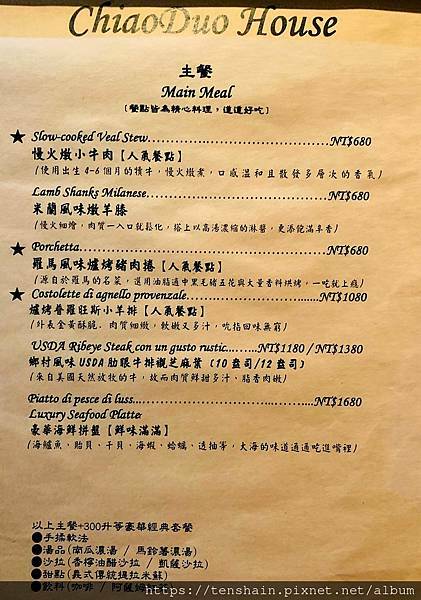 ChiaoDuo House
主餐
Main Meal
(餐點皆為精心料理，道道好吃)
★ Slow-cooked Veal Stew...........................................NT$680
慢火燉小牛肉【人氣餐點】
(使用出生4-6個月的犢牛，慢火燉煮，口感溫和且散發多層次的香氣)
Lamb Shanks Milanese...........................................NT$680
米蘭風味燉羊膝
(慢火細燴，肉質一入口就鬆化，搭上以高湯濃縮的淋醬，更添飽滿辛香)
★ Porchetta...........................................NT$680
羅馬風味爐烤豬肉捲【人氣餐點】
(源自於羅馬的名菜，選用油脂適中黑毛豬五花與大量香料烘烤，一吃就上癮)
★ Costolette di agnello provenzale...........................NT$1080
爐烤普羅旺斯小羊排【人氣餐點】
(外表金黃酥脆、肉質細緻，軟嫩又多汁，吮指回味無窮)
USDA Ribeye Steak con un gusto rustic.........NT$1180 / NT$1380
鄉村風味USDA肋眼牛排襯芝麻葉 (10盎司/12盎司)
(來自美國天然放牧的牛，故而肉質鮮甜多汁、脂香肉嫩)
Piatto di pesce di luss...........................................NT$1680
Luxury Seafood Platte
豪華海鮮拼盤【鮮味滿滿】
(海鱸魚，貽貝、干貝、海蝦、蛤蠣、透抽等，大海的味道通通吃進嘴裡)
以上主餐+300升等豪華經典套餐
●手揉軟法
●湯品(南瓜濃湯 / 馬鈴薯濃湯)
●沙拉(香檸油醋沙拉 / 凱薩沙拉)
●甜點(義式傳統提拉米蘇)
●飲料(咖啡 /
https://tenshain.pixnet.net/album